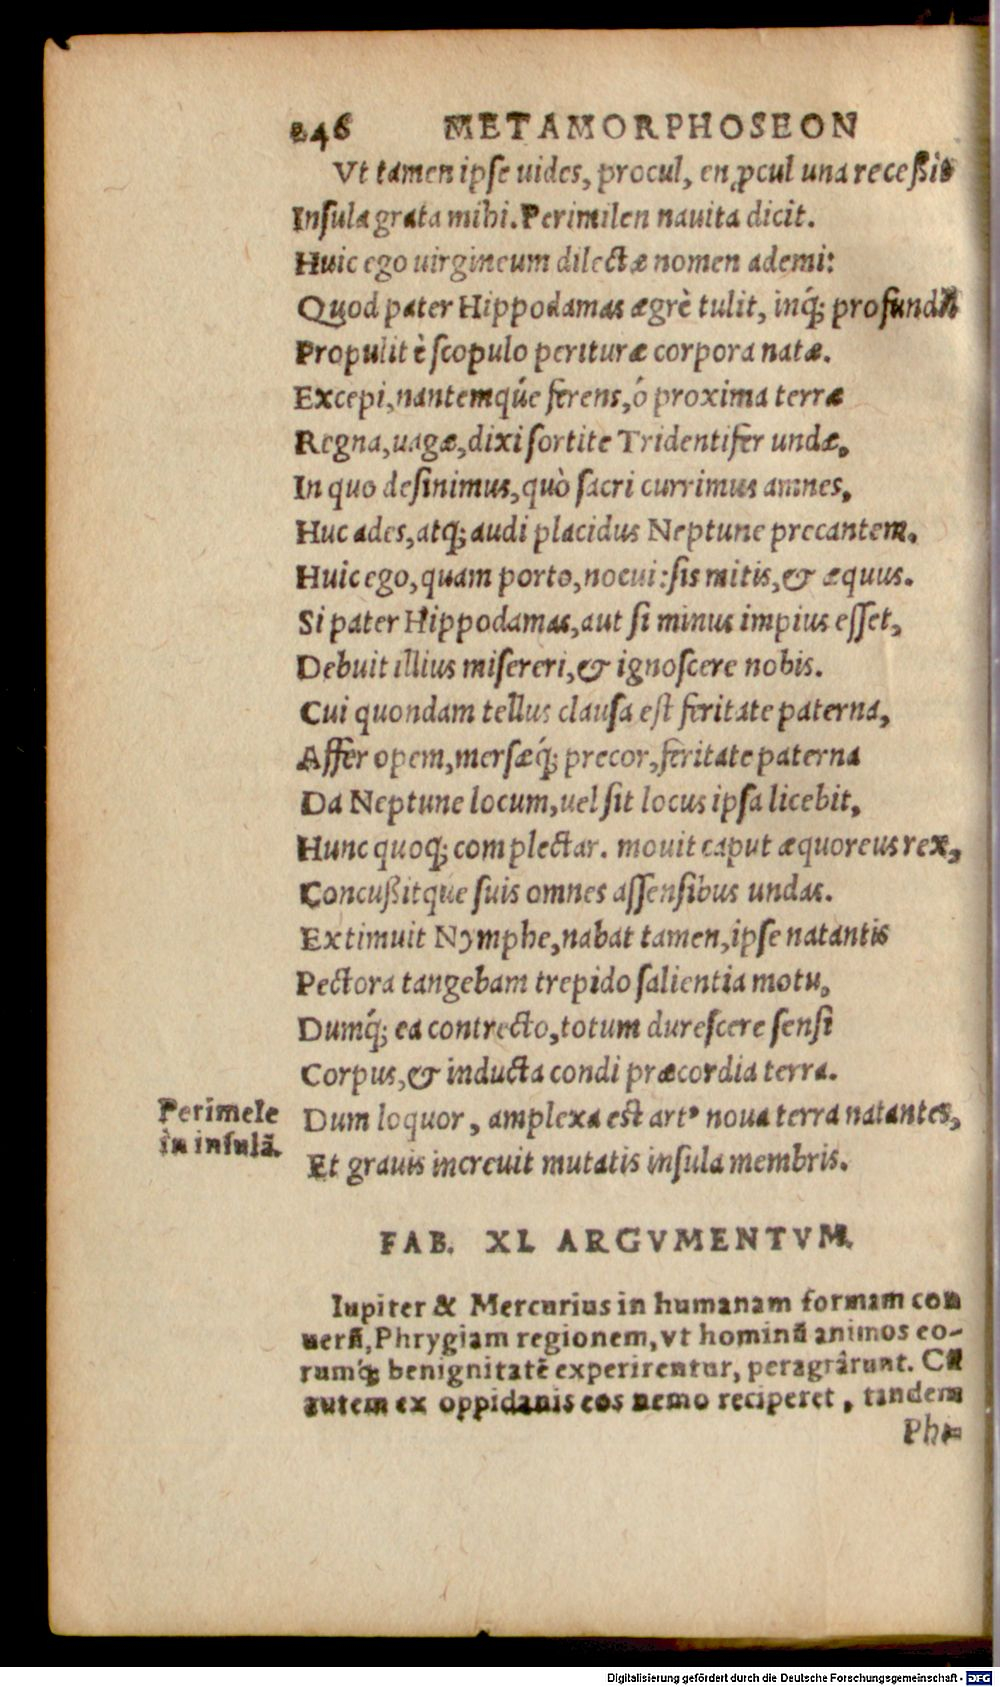 246 METAMORPHOSEON
Vt tamen ipſe uides, procul, en ꝓcul una receßit
Inſula grata mihi. Perimilen nauita dicit.
Huic ego uirgineum dilectæ nomen ademi:
Quod pater Hippodamas ægrè tulit, inq́; profundū
Propulit è ſcopulo perituræ corpora natæ.
Excepi, nantemqúe ferens, ó proxima terræ
Regna, uagæ, dixi ſortite Tridentifer undæ,
In quo deſinimus, quò ſacri currimus amnes,
Huc ades, atq; audi placidus Neptune precantem.
Huic ego, quam porto, nocui: ſis mitis, & æquus.
Si pater Hippodamas, aut ſi minus impius eſſet,
Debuit illius miſereri, & ignoſcere nobis.
Cui quondam tellus clauſa eſt feritate paterna,
Affer opem, merſæq́; precor, feritate paterna
Da Neptune locum, uel ſit locus ipſa licebit,
Hunc quoq; complectar. mouit caput æquoreus rex,
Concußitqúe ſuis omnes aſſenſibus undas.
Extimuit Nymphe, nabat tamen, ipſe natantis
Pectora tangebam trepido ſalientia motu,
Dumq́; ea contrecto, totum dureſcere ſenſi
Corpus, & inducta condi præcordia terra.
Perimele
in inſulā.
Dum loquor, amplexa eſt artꝰ noua terra natantes,
Et grauis increuit mutatis inſula membris.
FAB. XI. ARGVMENTVM.
Iupiter & Mercurius in humanam formam con
uerſi, Phrygiam regionem, vt hominū animos eo-
rumq́; benignitatē experirentur, peragrârunt. Cū
autem ex oppidanis eos nemo reciperet, tandem
Phi=
Digitalisierung gefördert durch die Deutsche Forschungsgemeinschaft - DFG